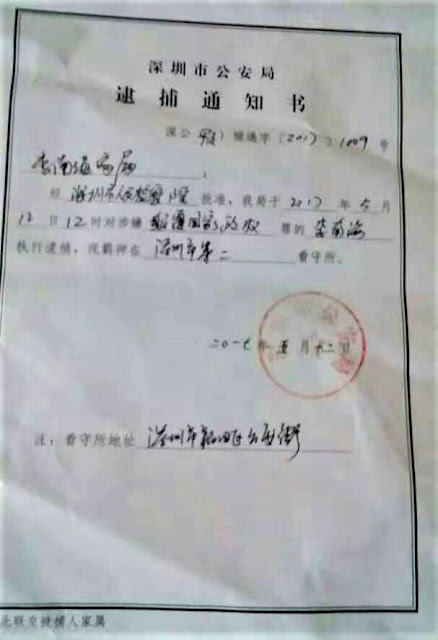 深圳市公安局
逮捕通知书
深公 预）捕通字〔2017〕1009 号
李南海家属：
经 深圳市人民检察院 批准，我局于 2017 年 5 月
12 日 12 时对涉嫌 颠覆国家政权 罪的 李南海
执行逮捕，现羁押在 深圳市第二 看守所。
二〇一七年五月十二日
注：看守所地址 深圳市福田区 街
此联交被捕人家属